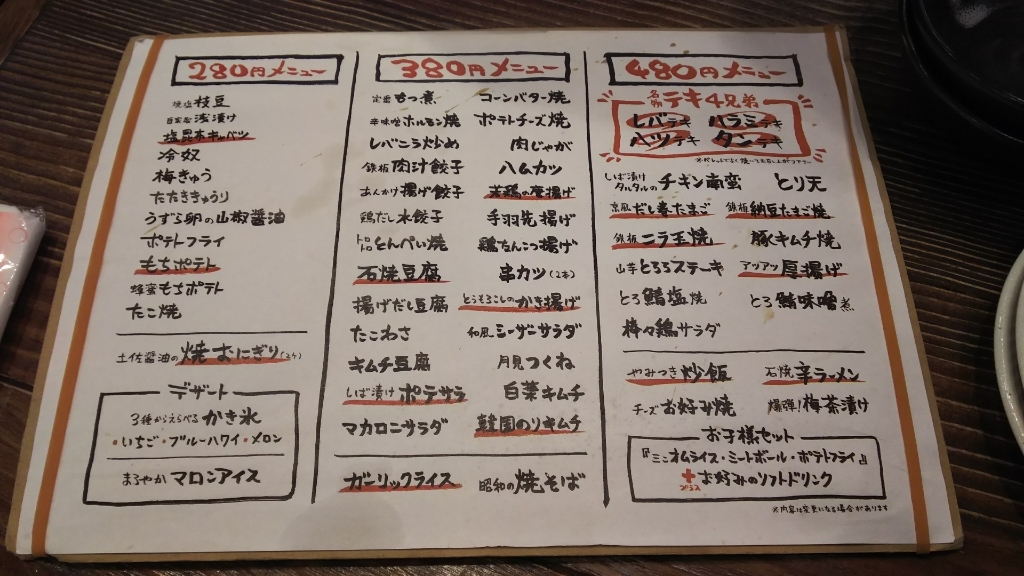 280円メニュー
塩茹 枝豆
自家製 浅漬け
塩昆布キャベツ
冷奴
梅きゅう
たたききゅうり
うずら卵の山椒醤油
ポテトフライ
もちポテト
蜂蜜もちポテト
たこ焼
土佐醤油の焼おにぎり(2ケ)
デザート
3種からえらべる かき氷
・いちご・ブルーハワイ・メロン
まろやか マロンアイス
380円メニュー
定番 もつ煮 コーンバター焼
辛味噌ホルモン焼 ポテトチーズ焼
レバニラ炒め 肉じゃが
鉄板 肉汁餃子 ハムカツ
あんかけ揚げ餃子 若鶏の唐揚げ
鶏だし水餃子 手羽先揚げ
トロトロとんぺい焼 鶏なんこつ揚げ
石焼豆腐 串カツ(2本)
揚げだし豆腐 とうもろこしのかき揚げ
たこわさ 和風シーザーサラダ
キムチ豆腐 月見つくね
しば漬けポテサラ 白菜キムチ
マカロニサラダ 韓国のりキムチ
ガーリックライス 昭和の焼そば
480円メニュー
名物 テキ4兄弟
レバテキ ハラミテキ
ハツテキ タンテキ
しば漬けタルタルのチキン南蛮 とり天
京風だし巻たまご 鉄板納豆たまご焼
鉄板ニラ玉焼 豚キムチ焼
山芋とろろステーキ アツアツ厚揚げ
とろ鯖塩焼 とろ鯖味噌煮
棒々鶏サラダ
やみつき炒飯 石焼辛ラーメン
チーズお好み焼 爆弾!梅茶漬け
お子様セット
『ミニオムライス・ミートボール・ポテトフライ』
+プラス お好みのソフトドリンク
※内容は変更になる場合があります